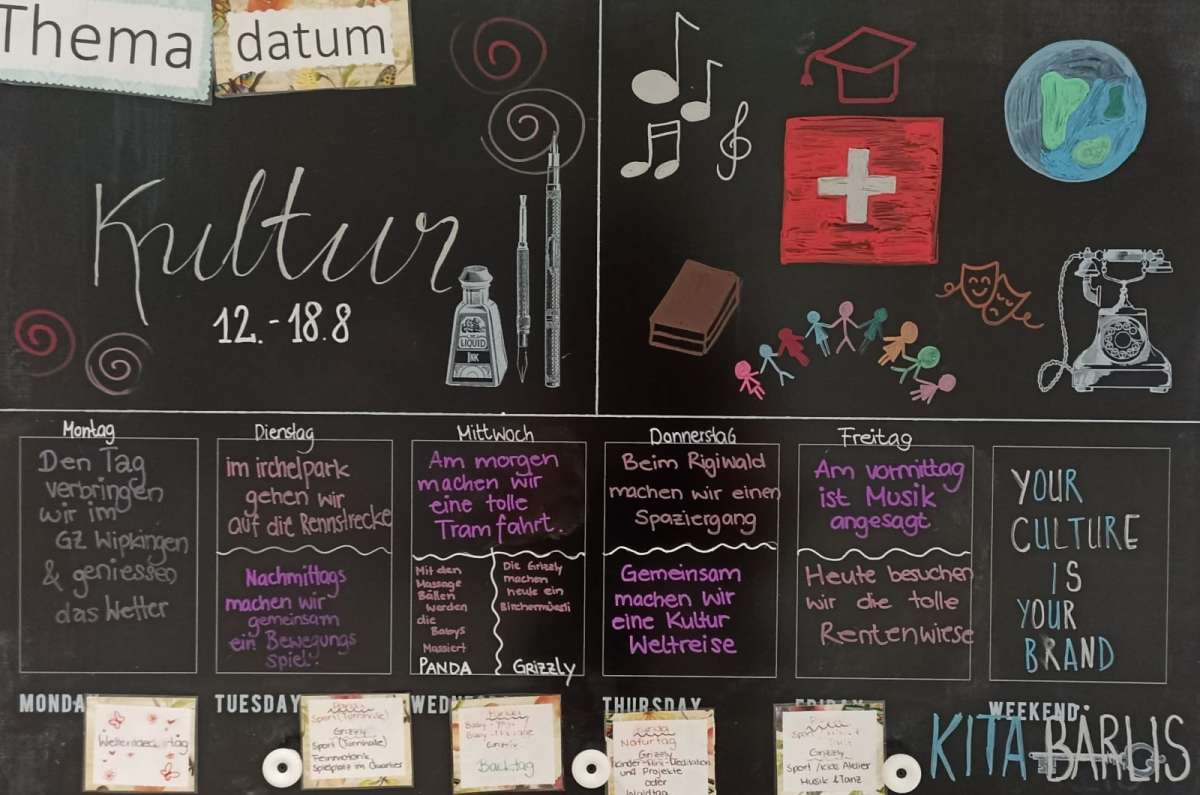 Thema
datum
Kultur
12.-18.8
LIQUID
INK
Montag
Den Tag
verbringen
wir im
GZ Wipkingen
& geniessen
das Wetter
Dienstag
im irchelpark
gehen wir
auf die Rennstrecke
Nachmittags
machen wir
gemeinsam
ein Bewegungs
spiel!
Mittwoch
Am morgen
machen wir
eine tolle
Tramfahrt.
Mit den
Massage
Bällen
werden
die
Babys
Massiert
PANDA
Die Grizzly
machen
heute ein
Birchermüesli
Grizzly
Donnerstag
Beim Rigiwald
machen wir einen
Spaziergang
Gemeinsam
machen wir
eine Kultur
Weltreise
Freitag
Am vormittag
ist Musik
angesagt
Heute besuchen
wir die tolle
Rentenwiese
YOUR
CULTURE
IS
YOUR
BRAND
MONDAY
TUESDAY
THURSDAY
WEEKEND
Sport (Turnhalle)
Grizzly
Sport (Turnhalle)
Feinmotorik
Spielplatz im Quartier
Backtag
Naturtag
Grizzly
Kinder-Mini-Meditation
und Projekte
oder
Waldtag
Grizzly
Sport / Kids Atelier
Musik & Tanz
KITA BÄRLIS